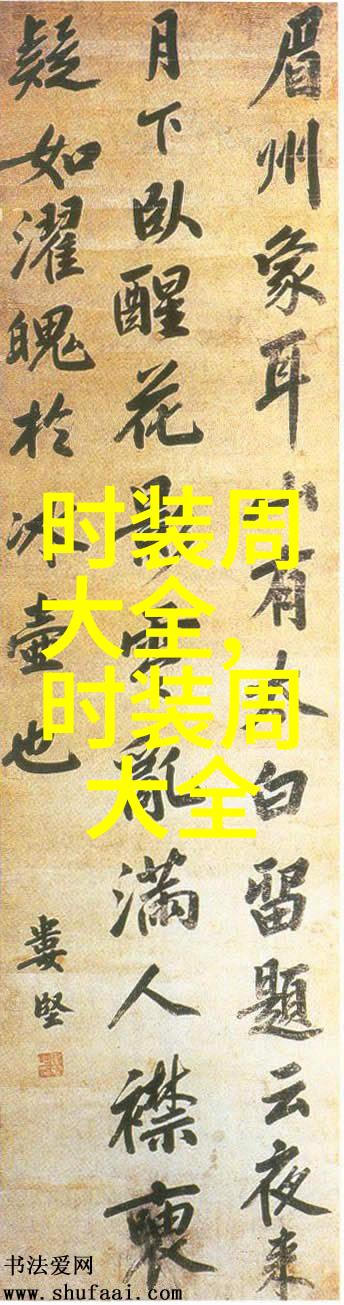 眉州象耳山有太白留題云夜来
月下臥醒花影零亂滿人襟
疑如濯魄於冰壺也
婁堅
时装周
大全，
时装周
大全
书法爱网
www.shufaai.com